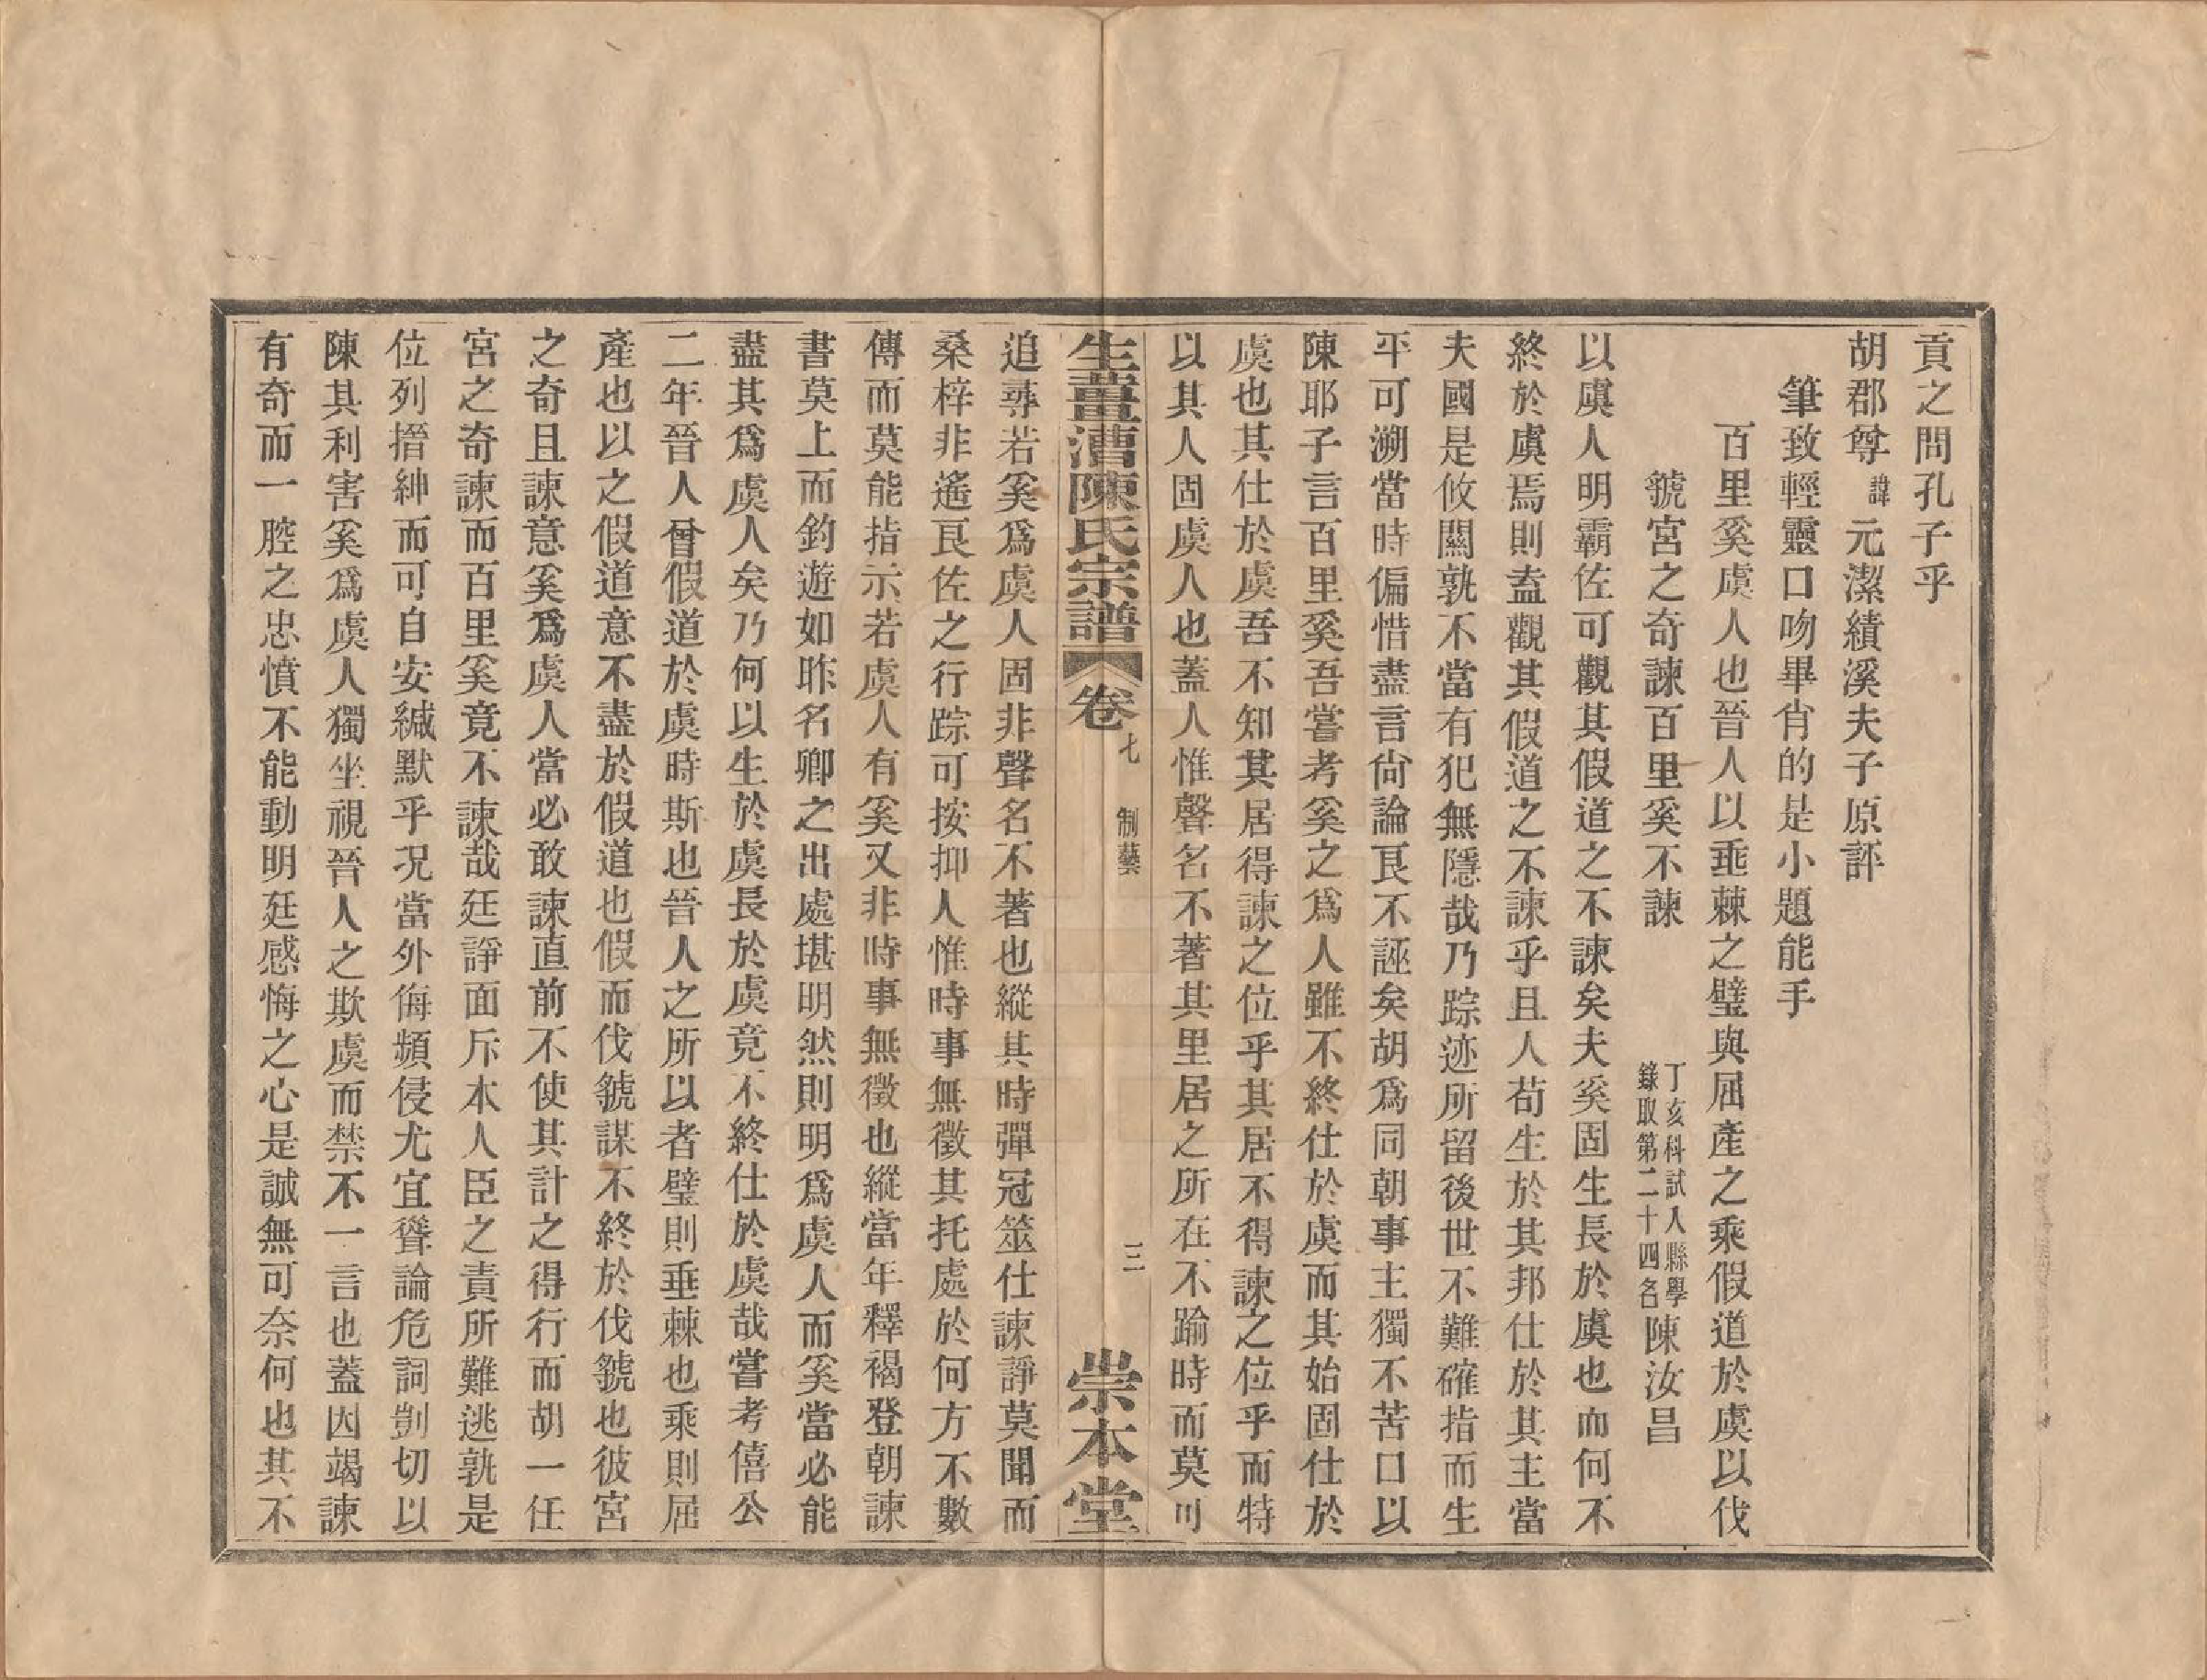 貢之問孔子乎
胡郡尊諱元潔績溪夫子原評
筆致輕靈口吻畢肖的是小題能手
百里奚虞人也晉人以垂棘之璧與屈產之乘假道於虞以伐
虢宮之奇諫百里奚不諫 丁亥科試入縣學錄取第二十四名 陳汝昌
以虞人明霸佐可觀其假道之不諫矣夫奚固生長於虞也而何不
終於虞焉則盍觀其假道之不諫乎且人苟生於其邦仕於其主當
夫國是攸關孰不當有犯無隱哉乃踪迹所留後世不難確指而生
平可溯當時偏惜盡言尙論艮不誣矣胡爲同朝事主獨不苦口以
陳耶子言百里奚吾嘗考奚之爲人雖不終仕於虞而其始固仕於
虞也其仕於虞吾不知其居得諫之位乎其居不得諫之位乎而特
以其人固虞人也蓋人惟聲名不著其里居之所在不踰時而莫可
生薑漕陳氏宗譜 卷七 制藝 三 崇本堂
追尋若奚爲虞人固非聲名不著也縱其時彈冠筮仕諫諍莫聞而
桑梓非遙艮佐之行踪可按抑人惟時事無徵其托處於何方不數
傳而莫能指示若虞人有奚又非時事無徵也縱當年釋褐登朝諫
書莫上而釣遊如昨名卿之出處堪明然則明爲虞人而奚當必能
盡其爲虞人矣乃何以生於虞長於虞竟不終仕於虞哉嘗考僖公
二年晉人曾假道於虞時斯也晉人之所以者璧則垂棘也乘則屈
產也以之假道意不盡於假道也假而伐虢謀不終於伐虢也彼宮
之奇且諫意奚爲虞人當必敢諫直前不使其計之得行而胡一任
宮之奇諫而百里奚竟不諫哉廷諍面斥本人臣之責所難逃孰是
位列搢紳而可自安緘默乎况當外侮頻侵尤宜聳論危詞剴切以
陳其利害奚爲虞人獨坐視晉人之欺虞而禁不一言也蓋因竭諫
有奇而一腔之忠憤不能動明廷感悔之心是誠無可奈何也其不